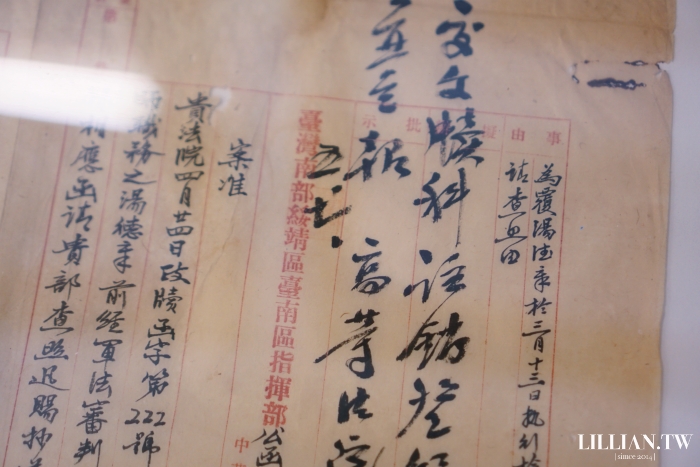 事由
為覆湯德章於三月十三日執行
請查照由
擬
批示
交文牘科註銷登
並呈報高等法院
五、七、
臺灣南部綏靖區臺南區指揮部公函
中
案准
貴法院四月廿四日政牘函字第222號
職務之湯德章前經軍法審判
相應函請貴部查照迅賜抄
第
LILLIAN.TW
[since 2014]